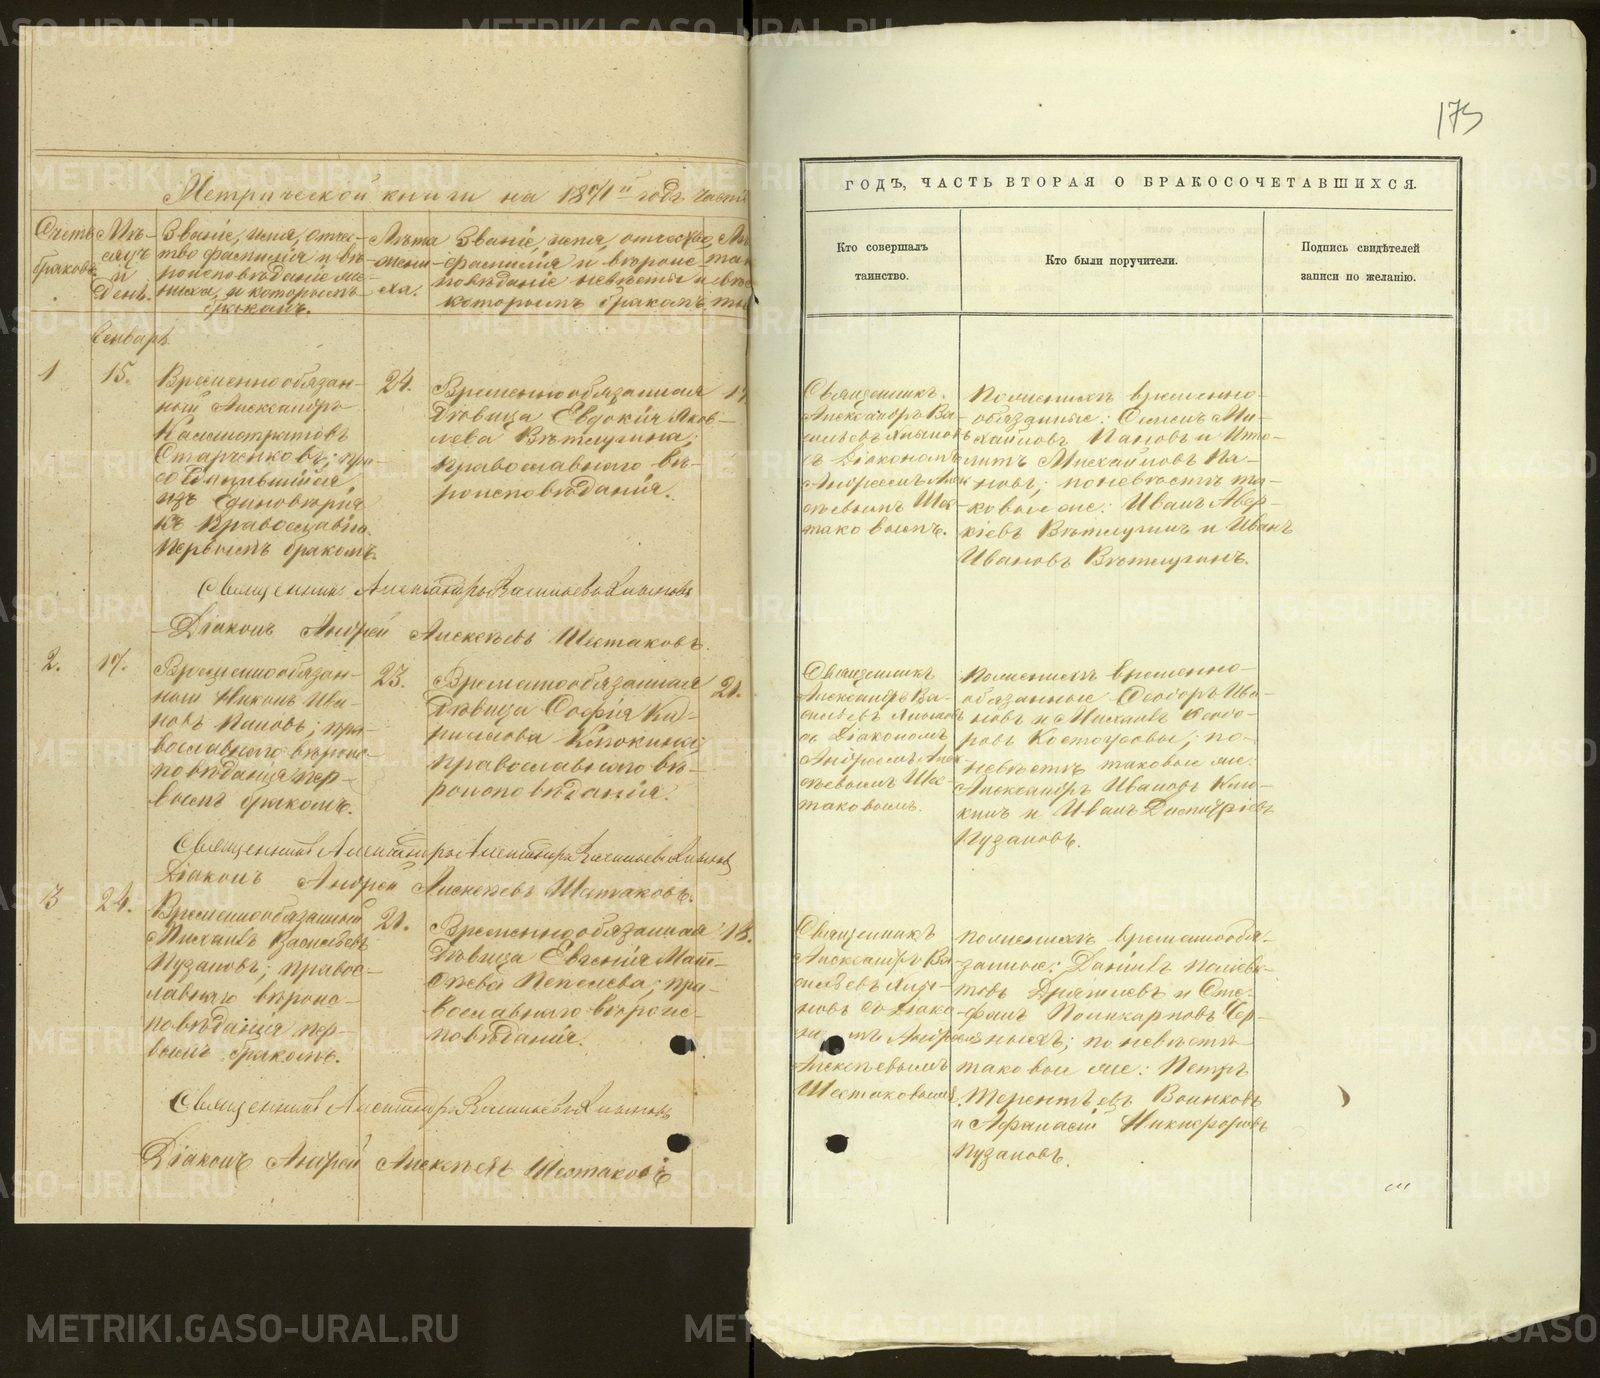 METRIKI.GASO-URAL.RU
175
Метрической книги на 1871й годъ часть
Счетъ браковъ.
Мѣсяцъ и День.
Званіе, имя, отчество фамилія и вѣроисповѣданіе жениха, и которымъ бракомъ.
Лѣта жениха.
Званіе, имя, отчество, фамилія и вѣроисповѣданіе невѣсты и которымъ бракомъ.
Январь
1
15.
Временнообязан-
ный Александръ
Каллистратовъ
Старченковъ; при-
соединившійся
изъ Единовѣрія
къ Православію.
Первымъ бракомъ.
24.
Временнообязанная
Дѣвица Евдокія Яков-
лева Вѣтлугина;
православнаго вѣ-
роисповѣданія.
Священникъ Александръ Васильевъ
Діаконъ Андрей Алексѣевъ Шестаковъ.
2.
17.
Временнообязан-
ный Никонъ Ива-
новъ Пановъ; пра-
вославнаго вѣроис-
повѣданія пер-
вымъ бракомъ.
23.
Временнообязанная
Дѣвица Софія Ки-
риллова Клюкина;
православнаго вѣ-
роисповѣданія.
21.
Священникъ Александръ Васильевъ
Діаконъ Андрей Алексѣевъ Шестаковъ.
3
24.
Временнообязанный
Михаилъ Васильевъ
Пузановъ; правос-
лавнаго вѣроис-
повѣданія пер-
вымъ бракомъ.
21.
Временнообязанная
Дѣвица Евгенія Мат-
ѳѣева Пепелева; пра-
вославнаго вѣроис-
повѣданія.
18.
Священникъ Александръ Васильевъ
Діаконъ Андрей Алексѣевъ Шестаковъ
ГОДЪ, ЧАСТЬ ВТОРАЯ О БРАКОСОЧЕТАВШИХСЯ.
Кто совершалъ
таинство.
Кто были поручители.
Подпись свидѣтелей
записи по желанію.
Священникъ
Александръ Ва-
сильевъ
съ Діакономъ
Андреемъ Алек-
сѣевымъ Шес-
таковымъ.
По женихѣ временно-
обязанные: Семенъ Ми-
хайловъ Пановъ и Иппо-
литъ Михайловъ Па-
новъ; по невѣстѣ та-
ковые же: Иванъ Авер-
кіевъ Вѣтлугинъ и Иванъ
Ивановъ Вѣтлугинъ.
Священникъ
Александръ Ва-
сильевъ
съ Діакономъ
Андреемъ Алек-
сѣевымъ Шес-
таковымъ.
По женихѣ временно-
обязанные Ѳеодоръ Ива-
новъ и Михаилъ Ѳеодо-
ровъ Костоусовы; по-
невѣстѣ таковые же:
Александръ Ивановъ Клю-
кинъ и Иванъ Дмитріевъ
Пузановъ.
Священникъ
Александръ Ва-
сильевъ
съ Діако-
номъ Андреемъ
Алексѣевымъ
Шестаковымъ.
По женихѣ временнообя-
занные: Даніилъ
и Сте-
фанъ Поликарповъ Чер-
ныхъ; по невѣстѣ
таковые же: Петръ
Терентьевъ Воинковъ
и Аѳанасій Никифоровъ
Пузановъ.